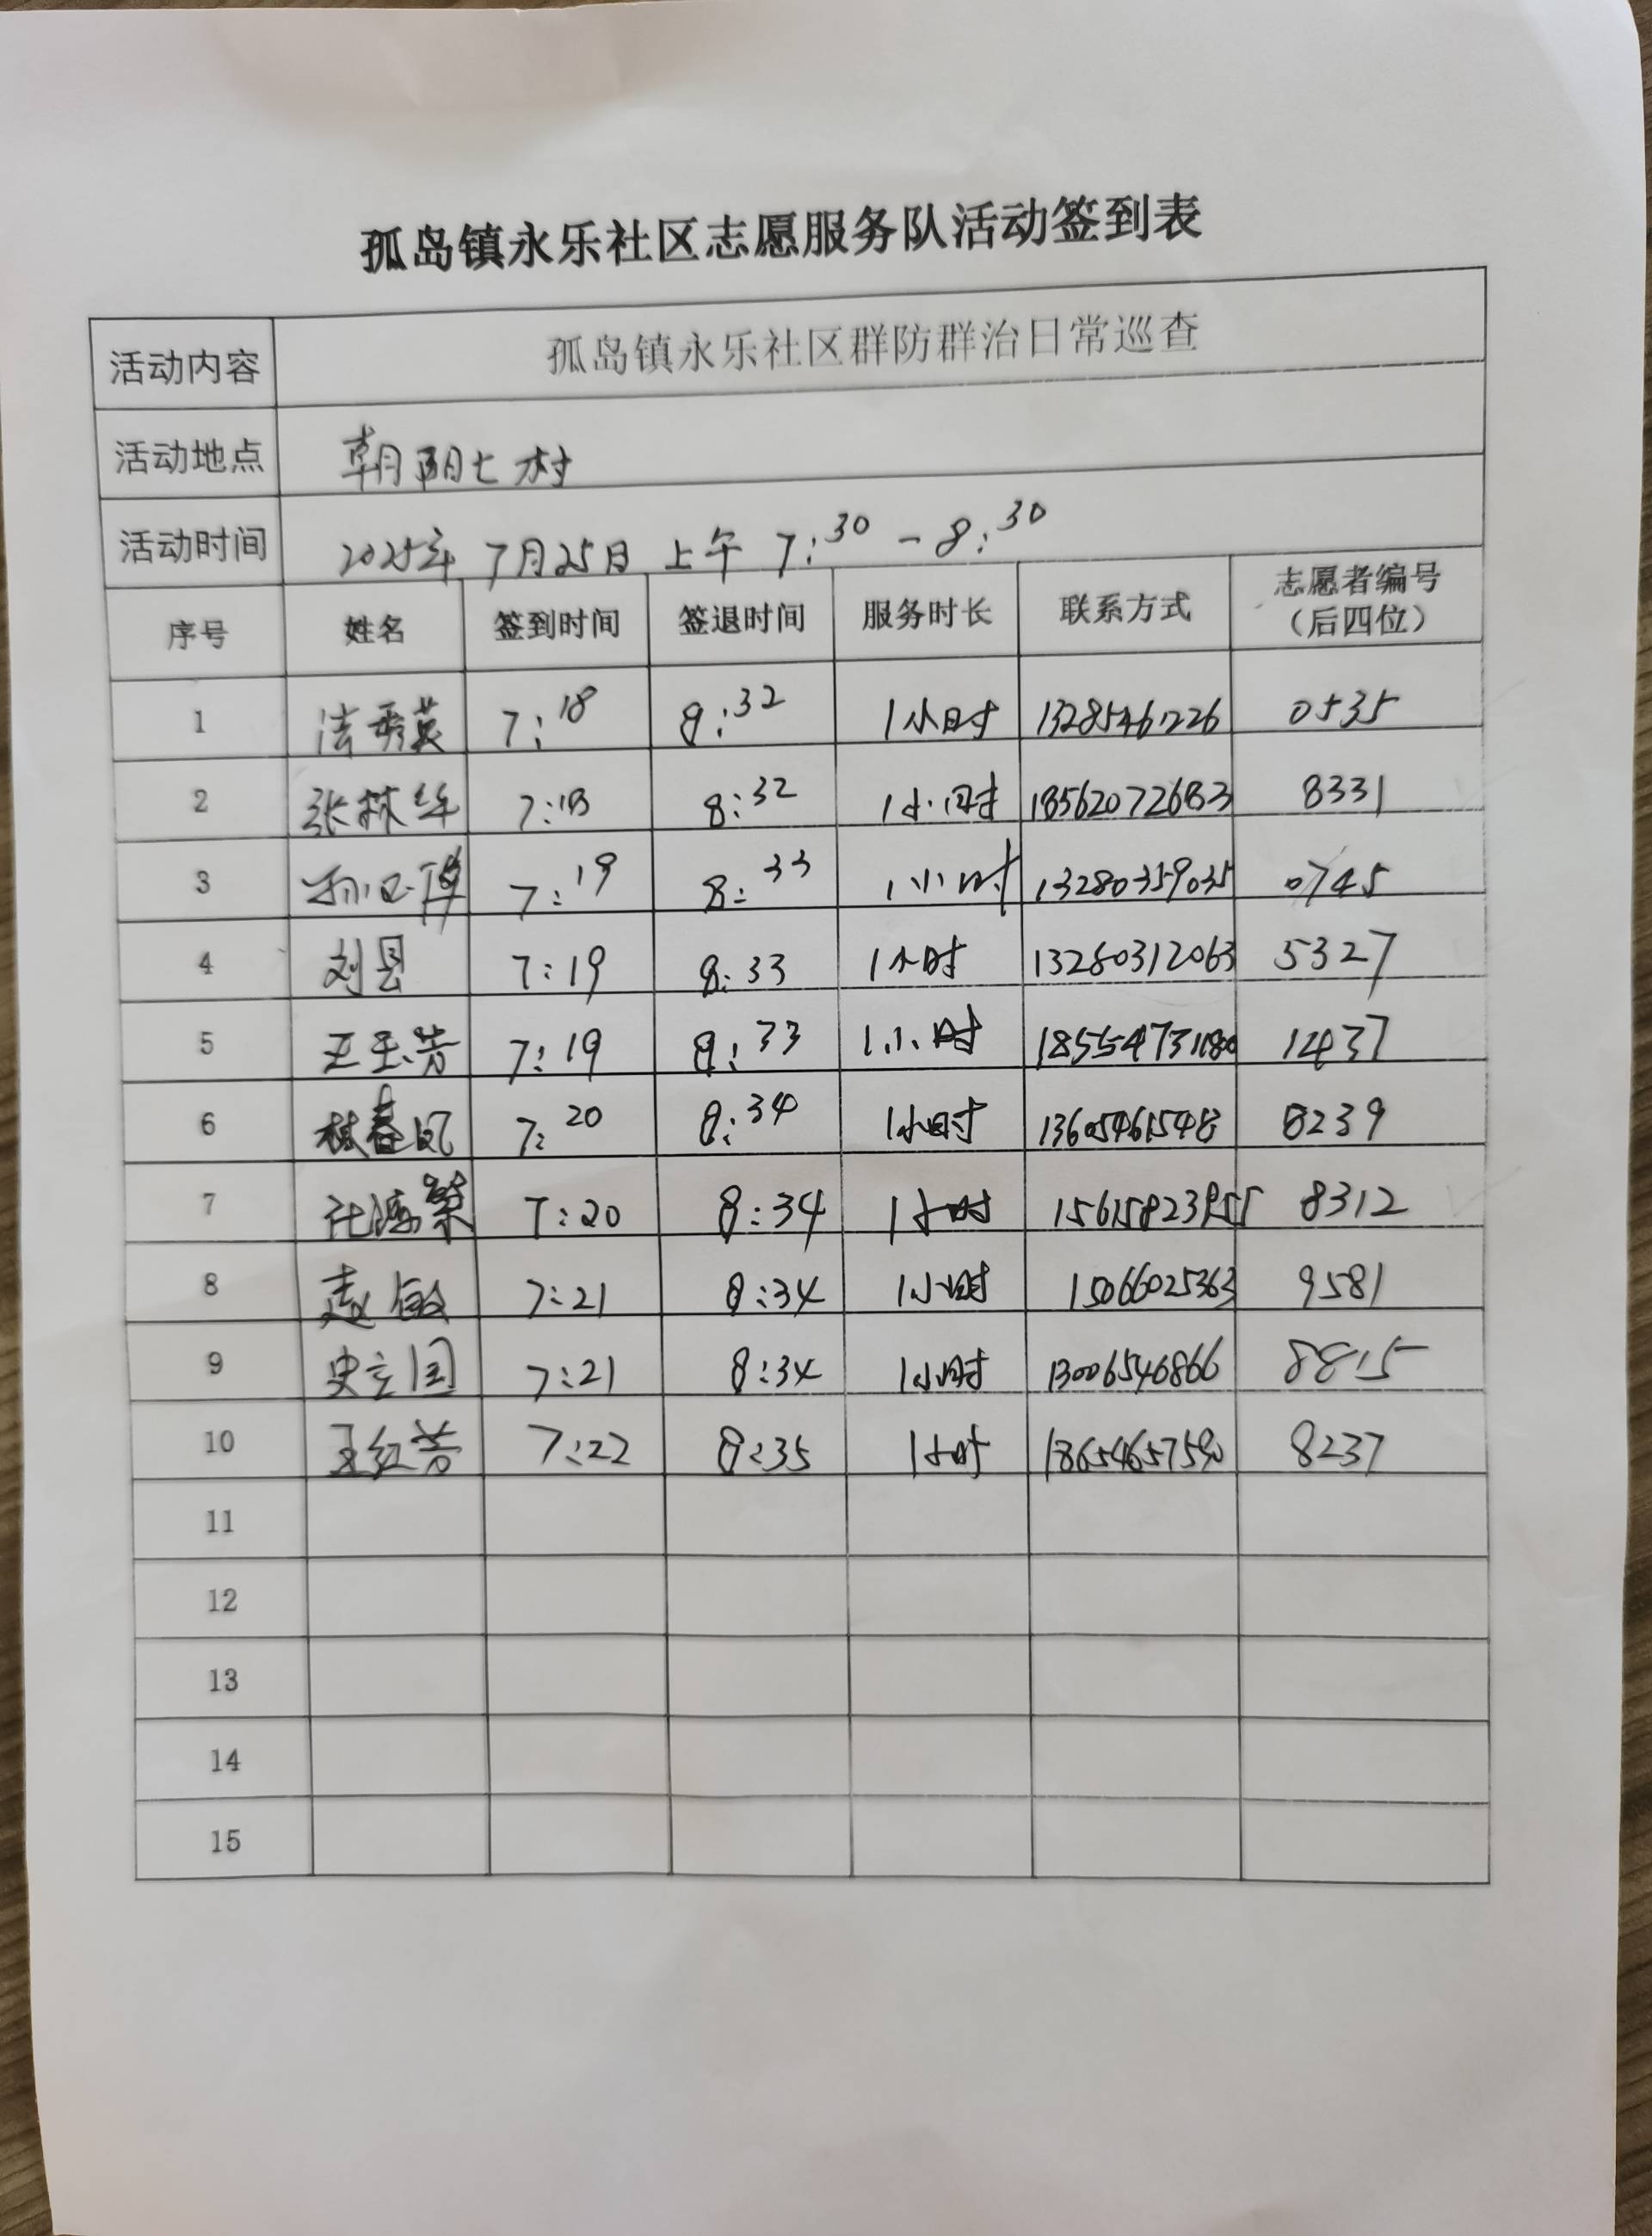 孤岛镇永乐社区志愿服务队活动签到表
活动内容 孤岛镇永乐社区群防群治日常巡查
活动地点 朝阳七村
活动时间 2025年 7月25日 上午 7:30 - 8:30
序号 姓名 签到时间 签退时间 服务时长 联系方式 志愿者编号（后四位）
1 秀英 7:18 8:32 1小时 0535
2 张林华 7:18 8:32 1小时 18562072683 8331
3 7:19 8:33 1小时 13280359035 0745
4 刘昙 7:19 8:33 1小时 13280312063 5327
5 王玉芳 7:19 8:33 1小时 18554731180 1437
6 林春凤 7:20 8:34 1小时 13605461548 8239
7 7:20 8:34 1小时 15615823955 8312
8 赵敏 7:21 8:34 1小时 15066025363 9581
9 史立国 7:21 8:34 1小时 13006546866 8815
10 王红芳 7:22 8:35 1小时 18654657590 8237
11
12
13
14
15